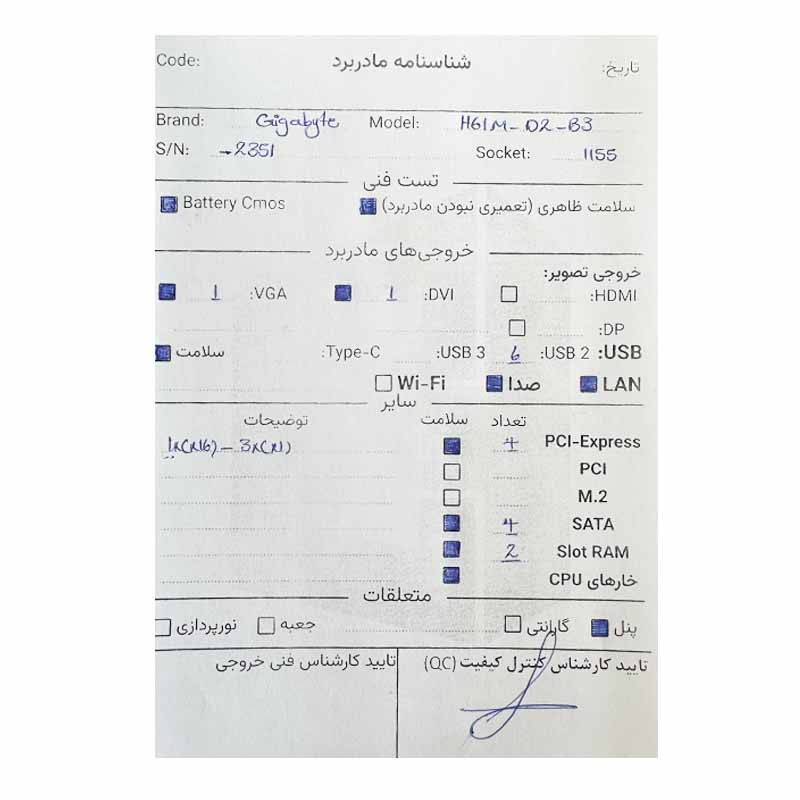 تاریخ: شناسنامه مادربرد Code:
Brand: Gigabyte Model: H61M-D2-B3
S/N: -2351 Socket: 1155
تست فنی
سلامت ظاهری (تعمیری نبودن مادربرد) Battery Cmos
خروجی‌های مادربرد
خروجی تصویر:
HDMI: DVI: 1 VGA: 1
DP:
USB: USB 2: 6 USB 3: Type-C: سلامت
LAN صدا Wi-Fi
سایر
تعداد سلامت توضیحات
PCI-Express 4 1x(x16) - 3x(x1)
PCI
M.2
SATA 4
Slot RAM 2
خارهای CPU
متعلقات
پنل گارانتی جعبه نورپردازی
تایید کارشناس کنترل کیفیت (QC) تایید کارشناس فنی خروجی